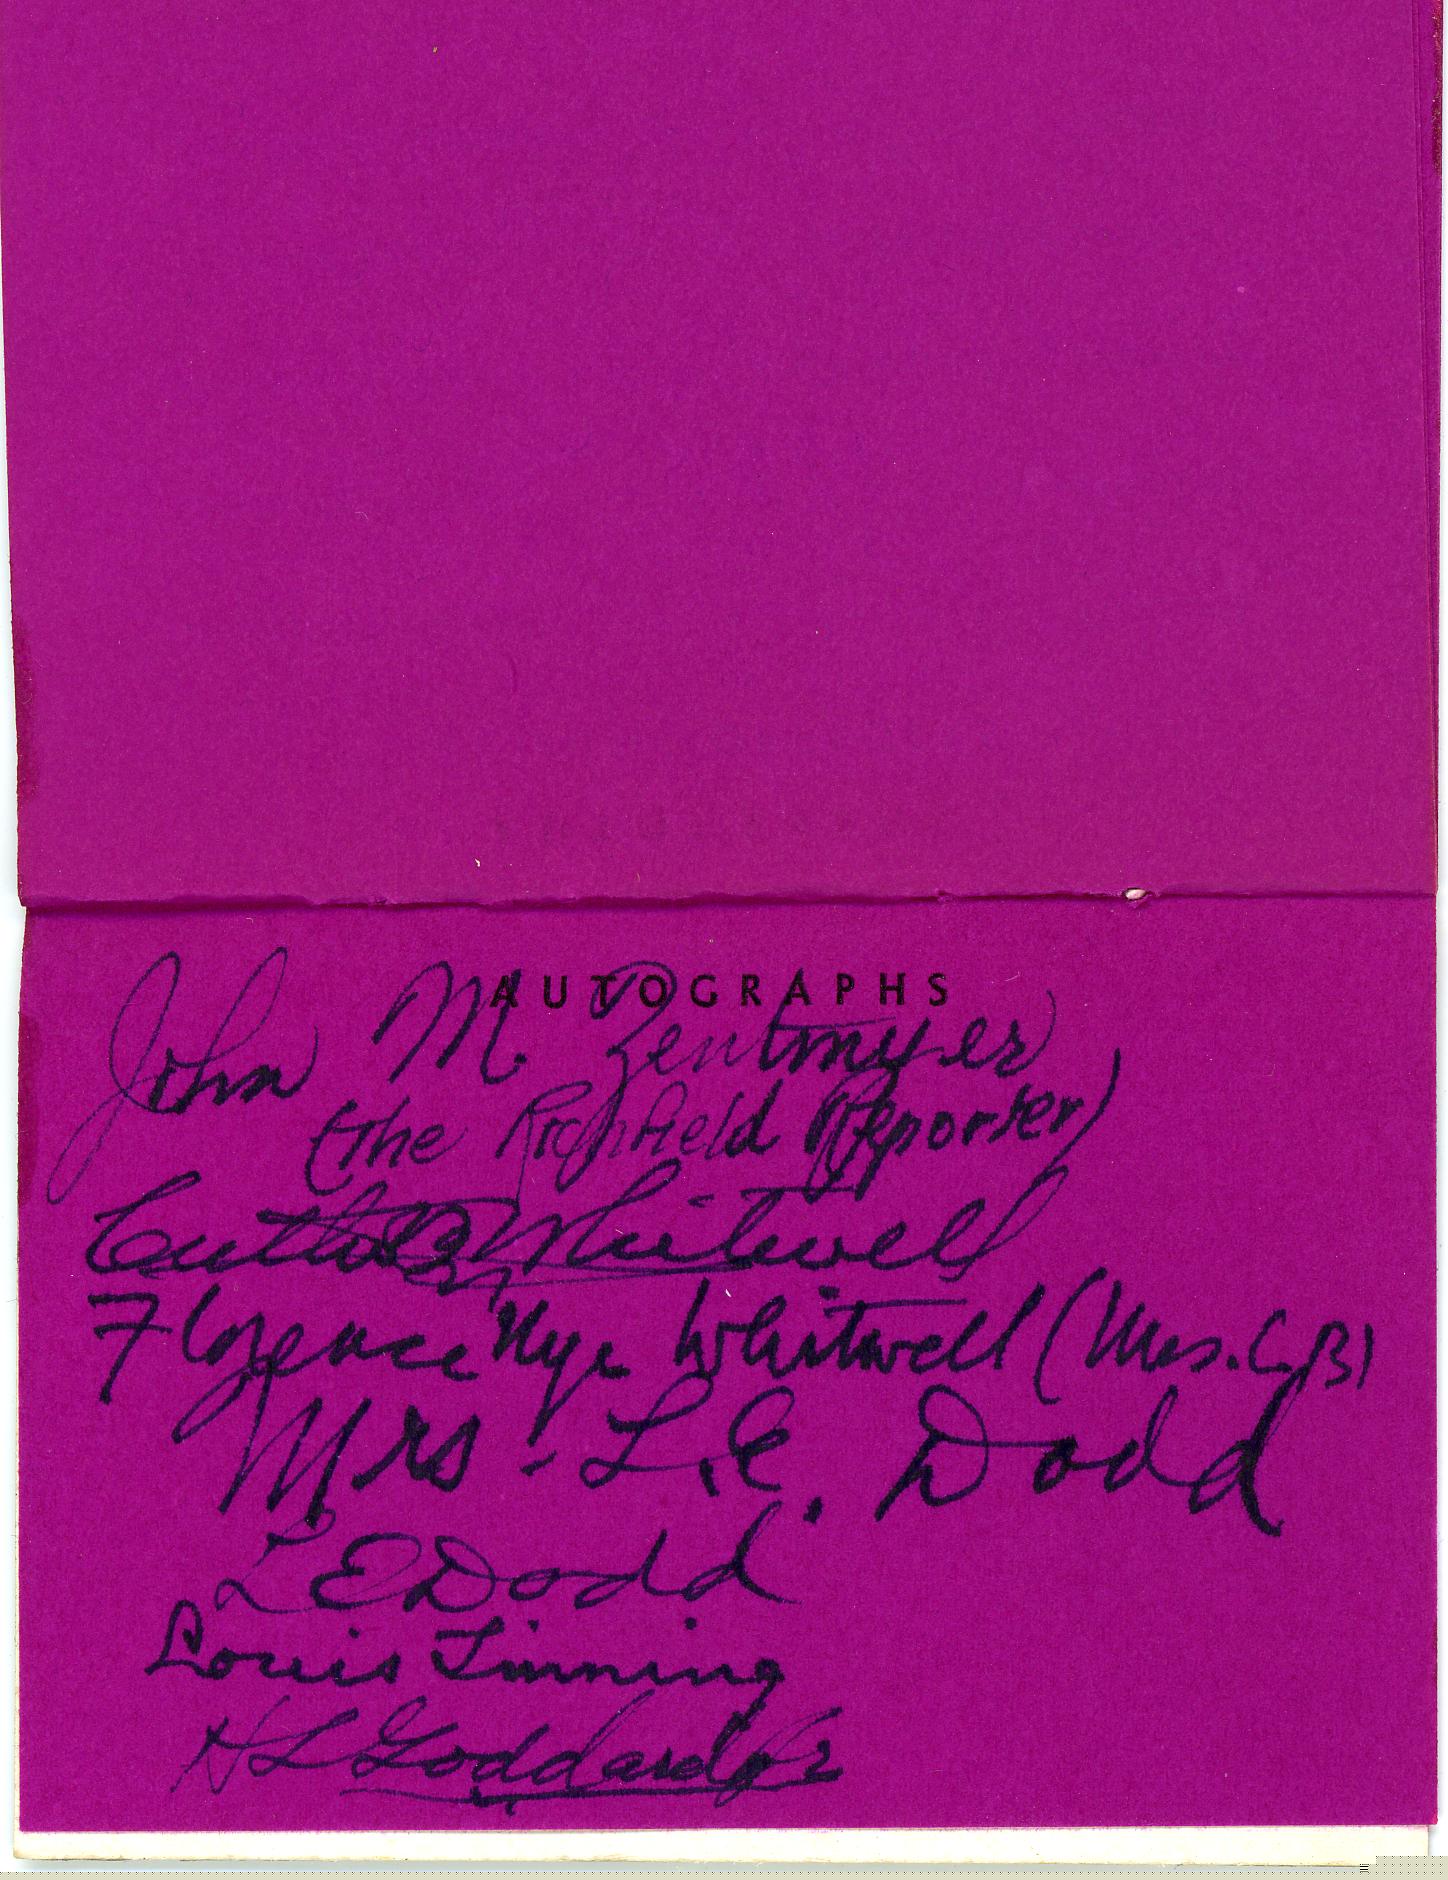 AUTOGRAPHS
John M. Zentmyer
(the Richfield Reporter)
B Whitwell
Florence Nye Whitwell (Mrs. C.B)
Mrs. L.E. Dodd
L E Dodd
Louis
H L Goddard Jr